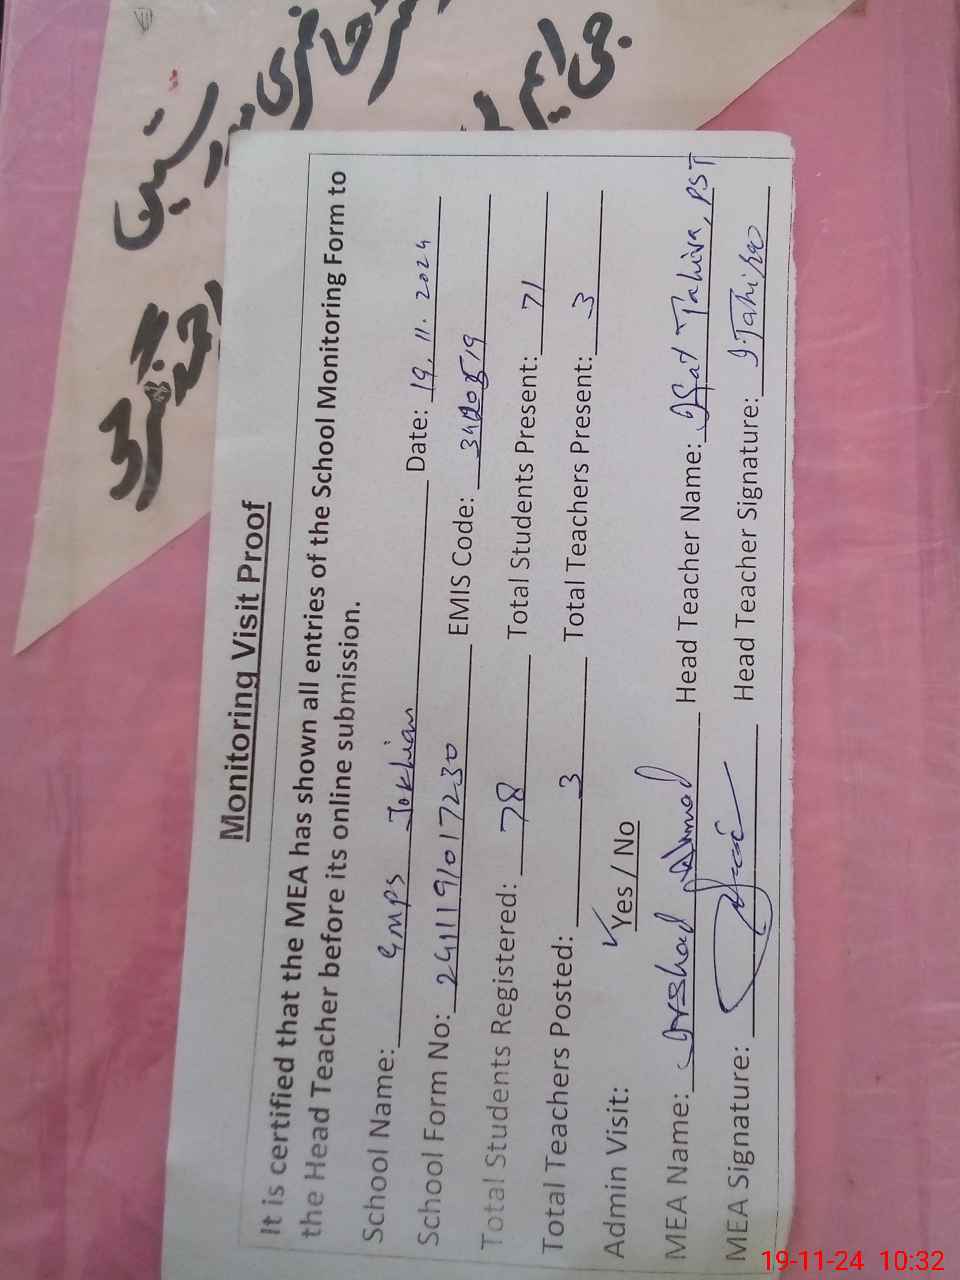 Monitoring Visit Proof
It is certified that the MEA has shown all entries of the School Monitoring Form to
the Head Teacher before its online submission.
School Name: GMPS Jokhian Date: 19.11.2024
School Form No: 2411191017230 EMIS Code:
Total Students Registered: 78 Total Students Present: 71
Total Teachers Posted: 3 Total Teachers Present: 3
Admin Visit: ✓Yes / No
MEA Name: Arshad Ahmad Head Teacher Name: Ifat Tahira, PST
MEA Signature: Head Teacher Signature: I.Tahira
19-11-24 10:32